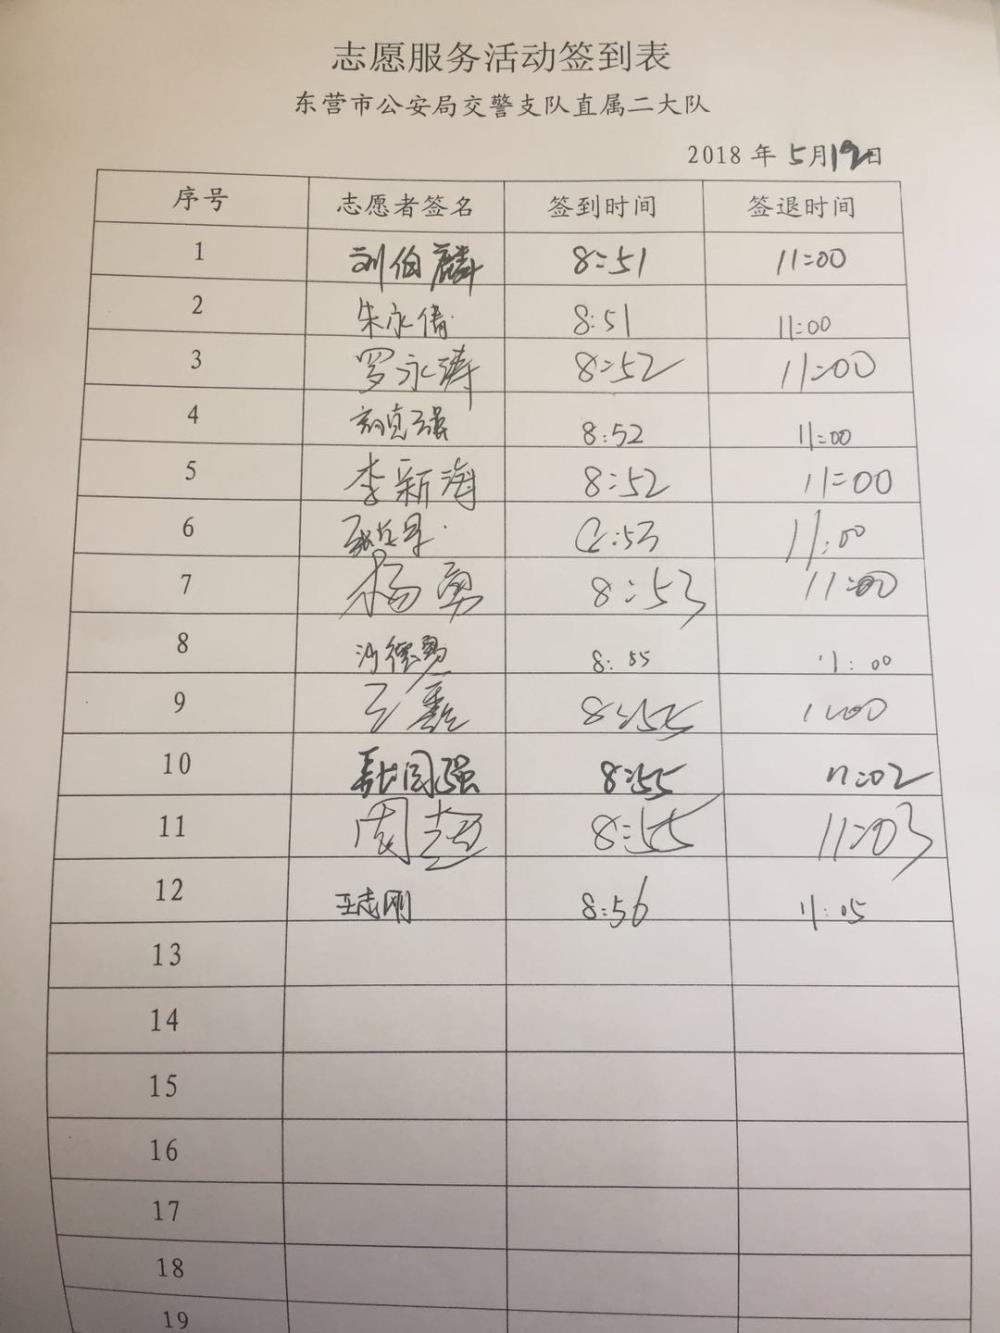 志愿服务活动签到表
东营市公安局交警支队直属二大队
2018 年 5月19日
序号 志愿者签名 签到时间 签退时间
1 刘伯麟 8:51 11:00
2 朱永倩 8:51 11:00
3 罗永涛 8:52 11:00
4 克强 8:52 11:00
5 李新海 8:52 11:00
6 :53 11:00
7 杨勇 8:53 11:00
8 德勇 8:55 11:00
9 王鑫 8:55 11:00
10 张国强 8:55 11:02
11 周超 8:55 11:03
12 王志刚 8:56 11:05
13
14
15
16
17
18
19